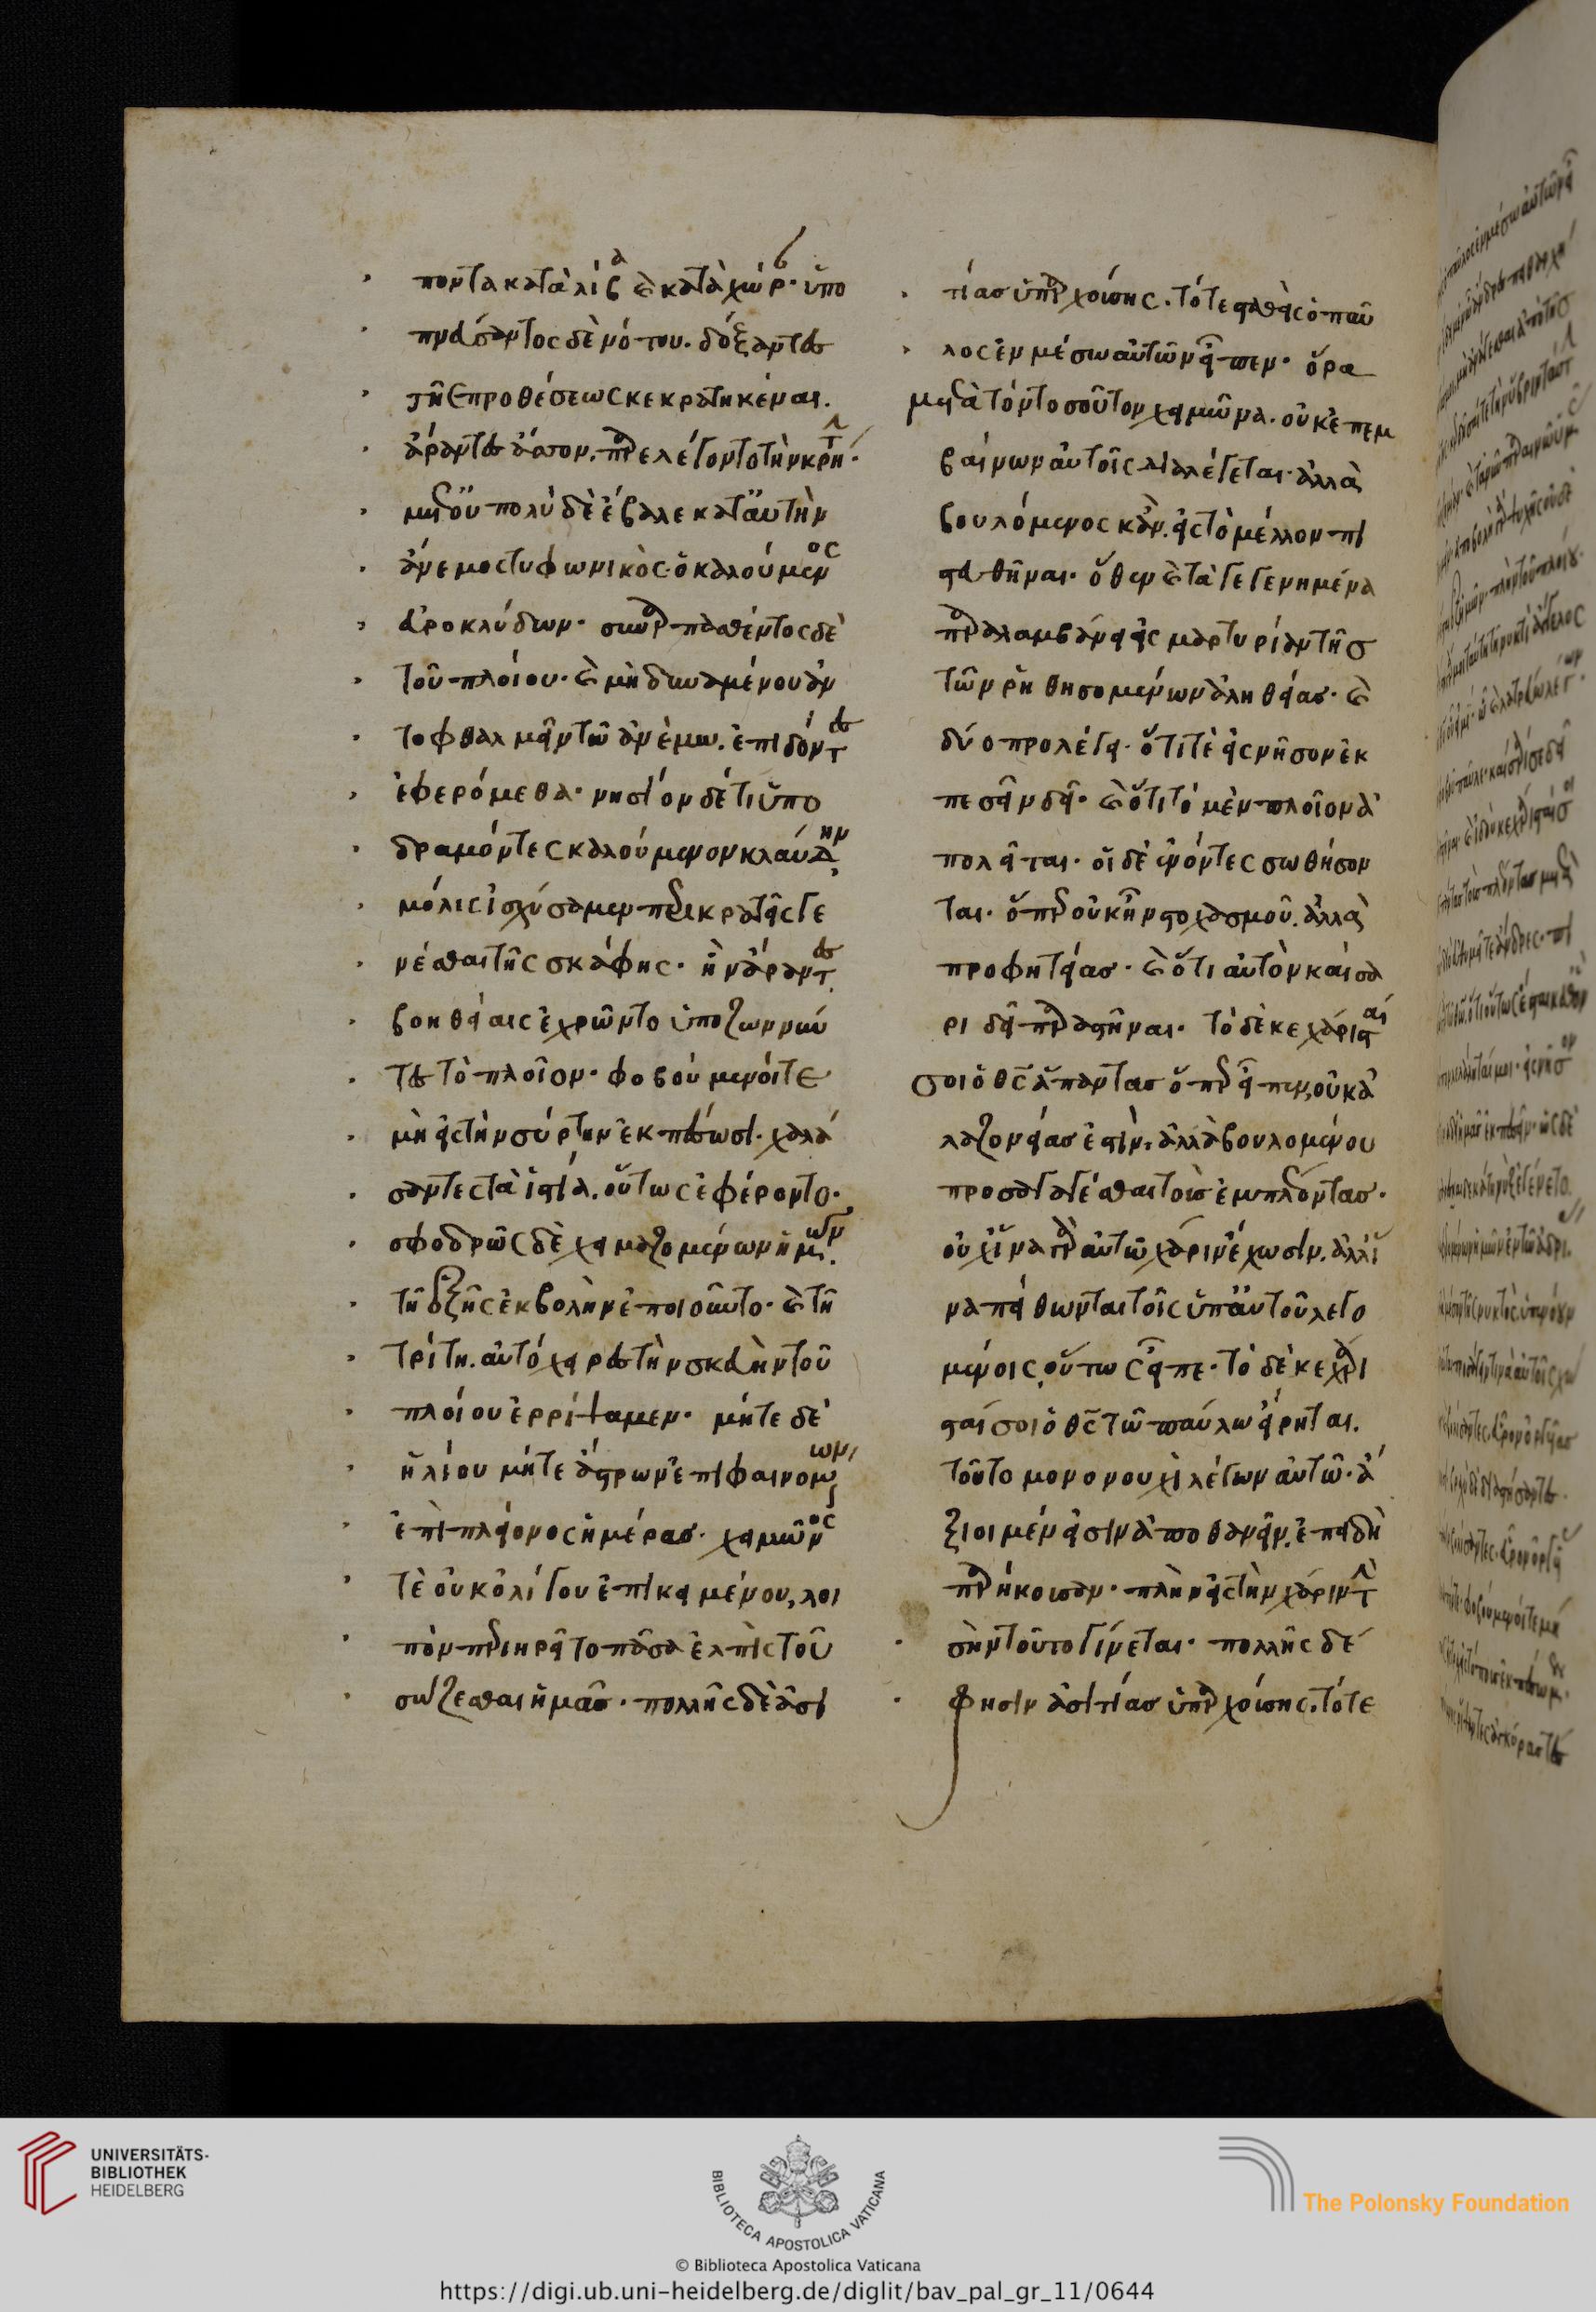 ποντα κατὰ λίβα καὶ κατὰ χώρον· ὑπο
πνεύσαντος δὲ νότου. δόξαντες
τῆς προθέσεως κεκρατηκέναι.
ἄραντες ἄσσον. παρελέγοντο τὴν κρήτην·
μετ' οὐ πολὺ δὲ ἔβαλε κατ' αὐτὴν
ἄνεμος τυφωνικὸς ὁ καλούμενος
εὐροκλύδων· συναρπασθέντος δὲ
τοῦ πλοίου· καὶ μὴ δυναμένου ἀν
τοφθαλμεῖν τῷ ἀνέμω. ἐπιδόντες
ἐφερόμεθα· νησίον δέ τι ὑπο
δραμόντες καλούμενον κλαύδην
μόλις ἰσχύσαμεν περικρατεῖς γε
νέσθαι τῆς σκάφης· ἣν ἄραντες
βοηθείαις ἐχρῶντο ὑποζωννύν
τες τὸ πλοῖον· φοβούμενοί τε
μὴ εἰς τὴν σύρτην ἐκπέσωσι. χαλά
σαντες τὰ ἱστία. οὕτως ἐφέροντο·
σφοδρῶς δὲ χειμαζομένων ἡμῶν.
τῇ ἑξῆς ἐκβολὴν ἐποιοῦντο· καὶ τῇ
τρίτη. αὐτόχειρες τὴν σκευὴν τοῦ
πλοίου ἐρρίψαμεν· μήτε δὲ
ἡλίου μήτε ἄστρων ἐπιφαινομένων
ἐπὶ πλείονας ἡμέρας. χειμῶνος
τὲ οὐκ ὀλίγου ἐπικειμένου, λοι
πὸν περιηρεῖτο πᾶσα ἐλπὶς τοῦ
σώζεσθαι ἡμᾶς. πολλῆς δὲ ἀσι
τίας ὑπαρχούσης. τότε σταθεὶς ὁ παῦ
λος ἐν μέσω αὐτῶν εἶπεν· ὅρα
μετὰ τὸν τοσοῦτον χειμῶνα. οὐκ ἐπεμ
βαίνων αὐτοῖς διαλέγεται· ἀλλὰ
βουλόμενος κἂν εἰς τὸ μέλλον πι
στευθῆναι. ὅθεν καὶ τὰ γεγενημένα
παραλαμβάνει εἰς μαρτυρίαν τῆς
τῶν ῥηθησομένων ἀληθείας· καὶ
δύο προλέγει· ὅτι τὲ εἰς νῆσον ἐκ
πεσεῖν δεῖ· καὶ ὅτι τὸ μὲν πλοῖον ἀ
πολεῖται· οἱ δὲ ἐνόντες σωθήσον
ται. ὅπερ οὐκ ἦν στοχασμοῦ. ἀλλὰ
προφητείας· καὶ ὅτι αὐτὸν καίσα
ρι δεῖ παραστῆναι· τὸ δὲ κεχάρισται
σοι ὁ θς ἅπαντας ὅπερ εἶπεν, οὐκ ἀ
λαζονείας ἐστὶν. ἀλλὰ βουλομένου
προσαγαγέσθαι τοὺς ἐμπλέοντας.
οὐχ ἵνα παρ' αὐτῶ χάριν ἔχωσιν. ἀλλ' ἵ
να πείθωνται τοῖς ὑπ' αὐτοῦ λεγο
μένοις, οὕτως εἶπε· τὸ δὲ κεχάρι
σταί σοι ὁ θς τῶ παύλω εἴρηται.
τοῦτο μονονουχὶ λέγων αὐτῶ· ἄ
ξιοι μὲν εἰσιν ἀποθανεῖν. ἐπειδὴ
παρήκουσαν· πλὴν εἰς τὴν χάριν τὴν
σὴν τοῦτο γίνεται· πολλῆς δέ
φησιν ἀσιτίας ὑπαρχούσης. τότε
UNIVERSITÄTS-
BIBLIOTHEK
HEIDELBERG
BIBLIOTECA APOSTOLICA VATICANA
© Biblioteca Apostolica Vaticana
The Polonsky Foundation
https://digi.ub.uni-heidelberg.de/diglit/bav_pal_gr_11/0644